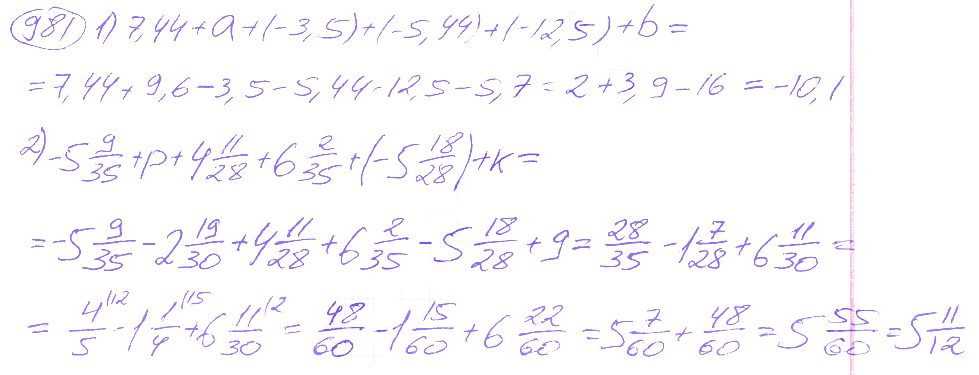 981 1) 7,44 + a + (-3,5) + (-5,44) + (-12,5) + b =
= 7,44 + 9,6 - 3,5 - 5,44 - 12,5 - 5,7 = 2 + 3,9 - 16 = -10,1
2) -5 9/35 + p + 4 11/28 + 6 2/35 + (-5 18/28) + k =
= -5 9/35 - 2 19/30 + 4 11/28 + 6 2/35 - 5 18/28 + 9 = 28/35 - 1 7/28 + 6 11/30 =
= 4/5 ^{(12} - 1 1/4 ^{(15} + 6 11/30 ^{(2} = 48/60 - 1 15/60 + 6 22/60 = 5 7/60 + 48/60 = 5 55/60 = 5 11/12